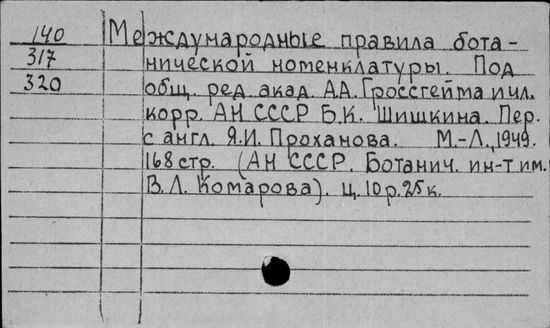 140 Международные правила бота-
317 нической номенклатуры. Под
320 общ. ред. акад. А.А. Гроссгейма и чл.
корр. АН СССР Б.К. Шишкина. Пер.
с англ. Я.И. Проханова. М.-Л., 1949.
168 стр. (АН СССР. Ботанич. ин-т им.
В.Л. Комарова). Ц. 10 р. 25 к.